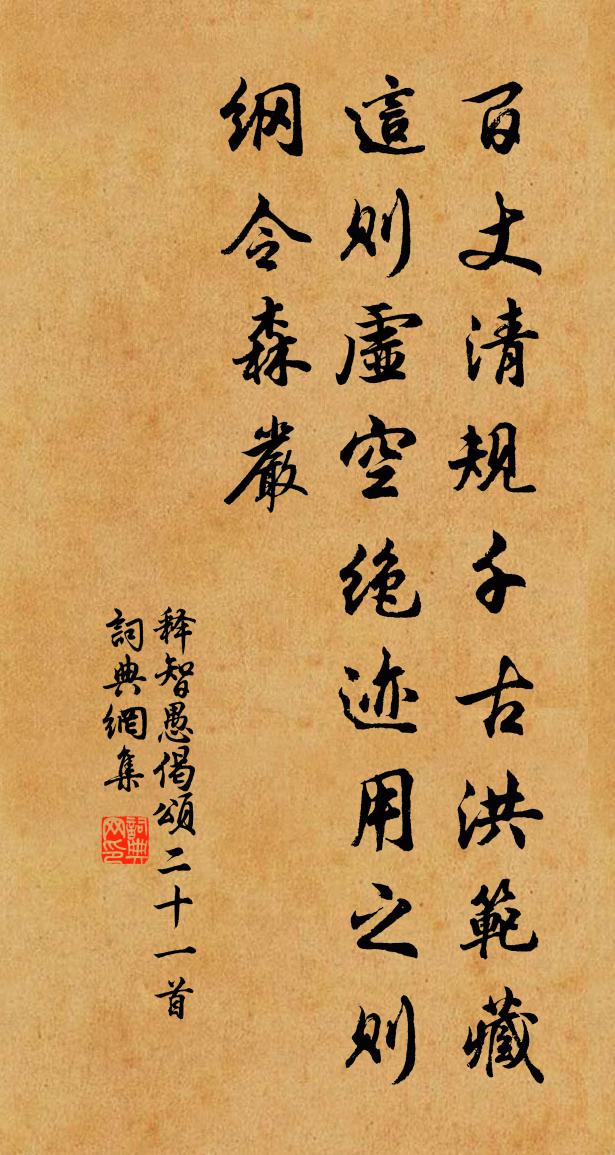 百丈清規千古洪範藏
這则虛空绝迹用之则
纲令森嚴
释智愚偈頌二十一首
詞典網集
詞典
网印